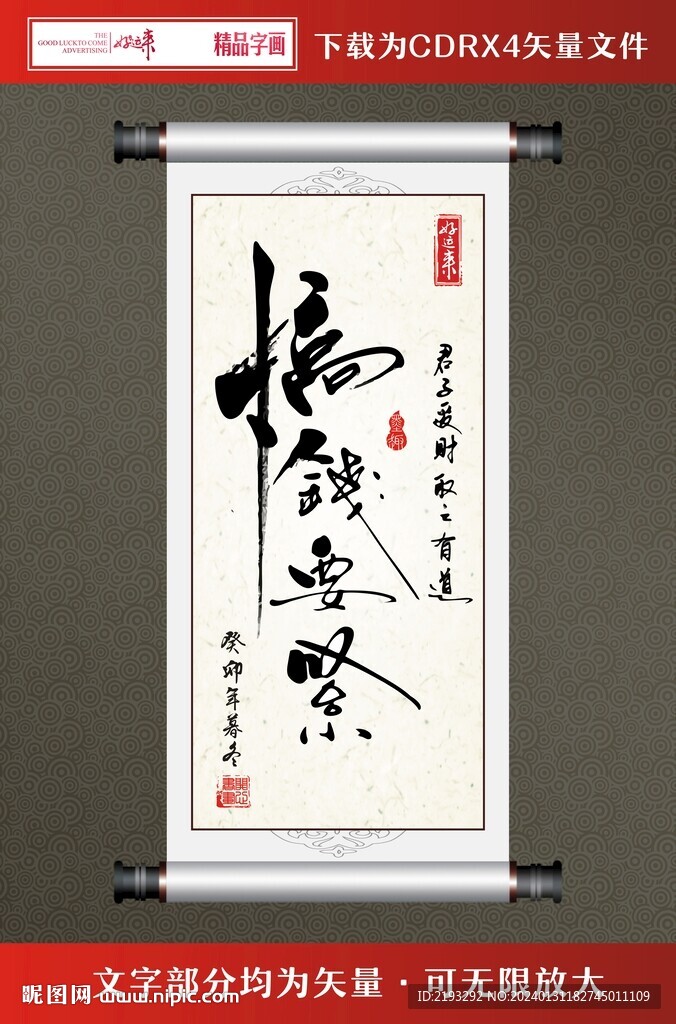 THE
GOOD LUCKTO COME
ADVERTISING
好运来
精品字画
下载为CDRX4矢量文件
好运来
君子爱财取之有道
搞錢要緊
墨趣
癸卯年暮冬
文字部分均为矢量·可无限放大
昵图网 www.nipic.com
ID:2193292 NO:20240131182745011109